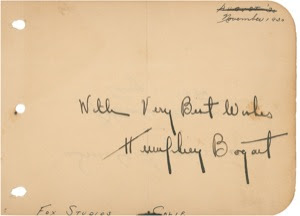 November 1930
With Very Best Wishes
Humphrey Bogart
Fox Studios Calif